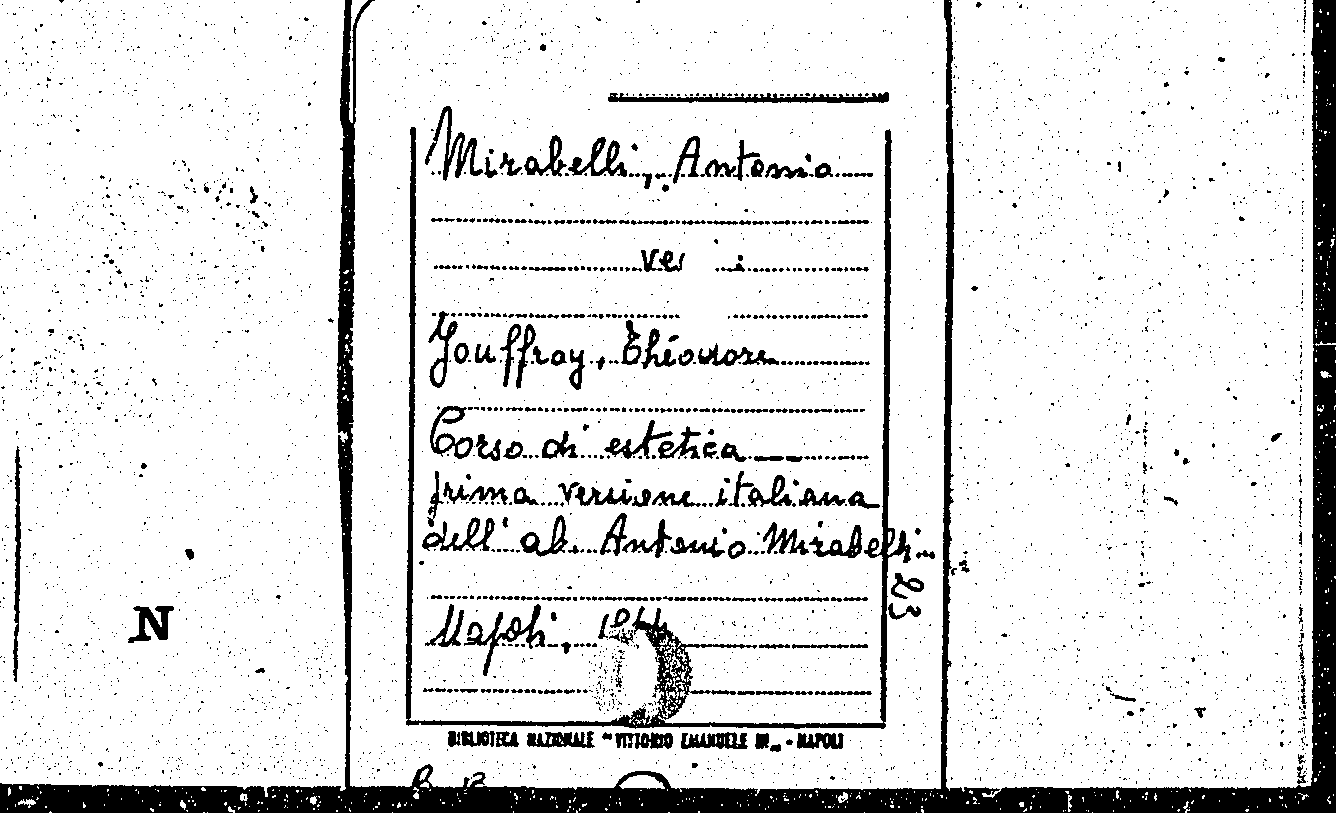 Mirabelli, Antonio
Jouffroy, Théodore
Corso di estetica
prima versione italiana
dell' ab. Antonio Mirabelli
23
N
Napoli, 1844
BIBLIOTECA NAZIONALE "VITTORIO EMANUELE III" - NAPOLI